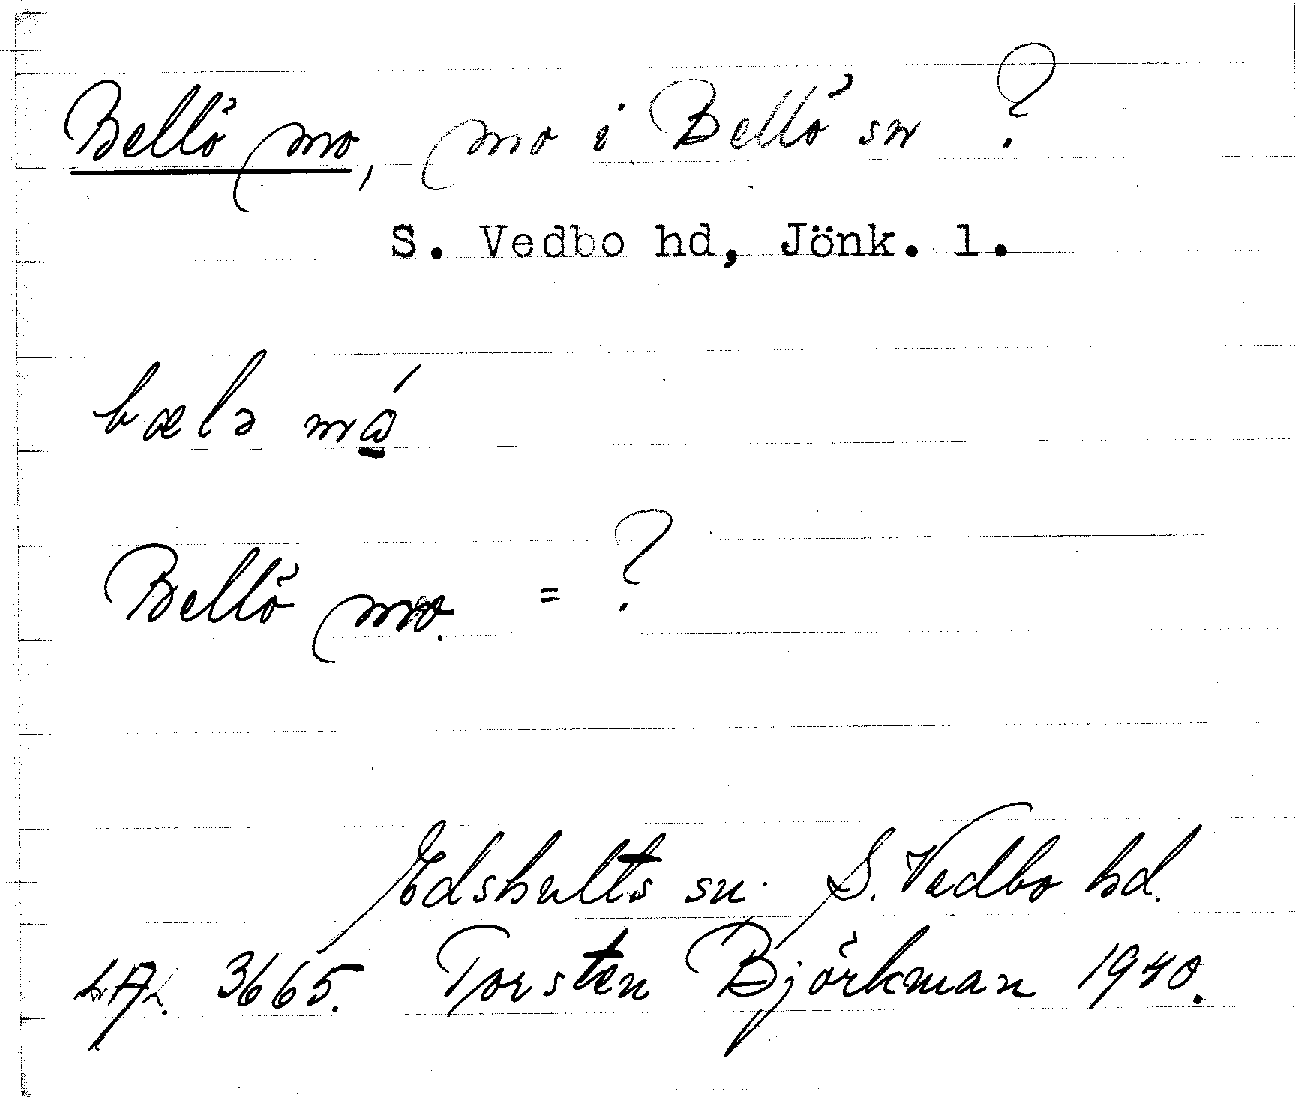 Bellö mo, mo i Bellö sn ?
S. Vedbo hd, Jönk. l.
bælə mǻ
Bellö mo. = ?
Edshults sn. S. Vedbo hd.
LAL. 3665. Torsten Björkman 1940.